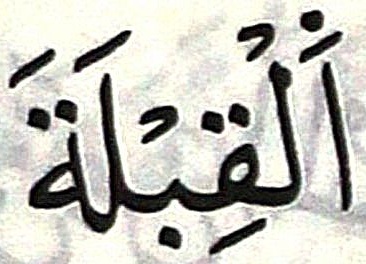 اَلْقِبْلَةَ